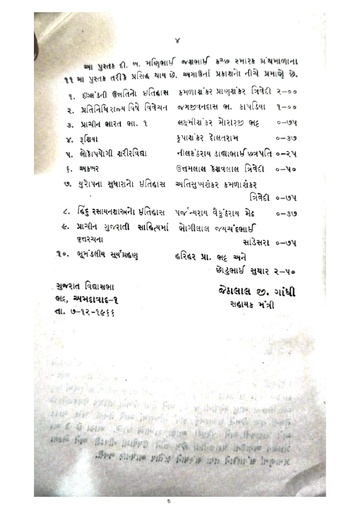 ૪
આ પુસ્તક દી. બ. મણિભાઈ જશભાઈ સ્મારક ગ્રંથમાળાના
૧૧ મા પુસ્તક તરીકે પ્રસિદ્ધ થાય છે. અગાઉનાં પ્રકાશનો નીચે પ્રમાણે છે.
૧. ઇંગ્લંડની ઉન્નતિનો ઇતિહાસ કમળાશંકર પ્રાણશંકર ત્રિવેદી ૨-૦૦
૨. પ્રતિનિધિરાજ્ય વિષે વિવેચન જગજીવનદાસ ભ. કાપડિયા ૧-૦૦
૩. પ્રાચીન ભારત ભા. ૧ લક્ષ્મીશંકર મોરારજી ભટ્ટ ૦-૭૫
૪. રૂશિયા કૃપાશંકર દોલતરામ ૦-૩૭
૫. લોકોપયોગી શરીરવિદ્યા નીલકંઠરાય ડાહ્યાભાઈ છત્રપતિ ૦-૨૫
૬. અકબર ઉત્તમલાલ કેશવલાલ ત્રિવેદી ૦-૫૦
૭. યુરોપના સુધારાનો ઇતિહાસ અતિસુખશંકર કમળાશંકર
ત્રિવેદી ૦-૭૫
૮. હિંદુ રસાયનશાસ્ત્રનો ઇતિહાસ પર્જન્યરાય વૈકુંઠરાય મેઢ ૦-૩૭
૯. પ્રાચીન ગુજરાતી સાહિત્યમાં ભોગીલાલ જયચંદભાઈ
વૃત્તરચના સાંડેસરા ૦-૭૫
૧૦. ભૂમંડલીય સૂર્યગ્રહણ હરિહર પ્રા. ભટ્ટ અને
છોટુભાઈ સુથાર ૨-૫૦
ગુજરાત વિદ્યાસભા
ભદ્ર, અમદાવાદ-૧
તા. ૭-૧૨-૧૯૬૬
જેઠાલાલ જી. ગાંધી
સહાયક મંત્રી